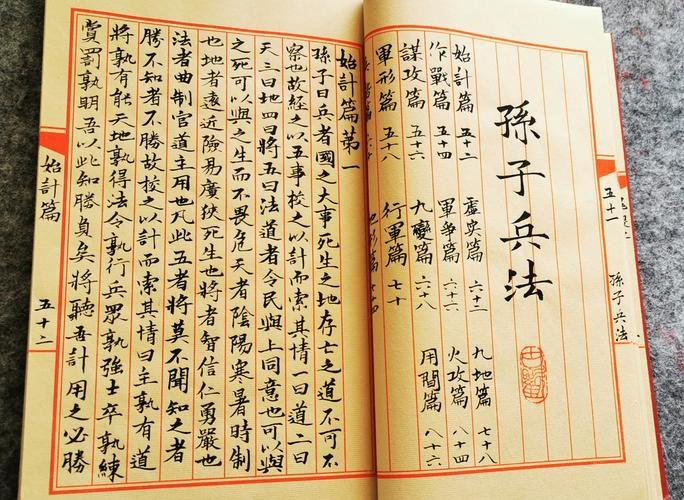 孫子兵法
五十一
孫子兵法
始計篇 五十二 虛实篇 六十二 九地篇 七十八
作戰篇 五十四 軍爭篇 六十六 火攻篇 八十四
謀攻篇 五十六 九變篇 六十八 用間篇 八十六
軍形篇 五十八 行軍篇 七十
地形篇 七十四
始計篇第一
孫子曰兵者國之大事死生之地存亡之道不可不
察也故經之以五事校之以計而索其情一曰道二曰
天三曰地四曰將五曰法道者令民與上同意也可以與
之死可以與之生而不畏危天者陰陽寒暑時制
也地者遠近險易廣狹死生也將者智信仁勇嚴也
法者曲制官道主用也凡此五者將莫不聞知之者
勝不知者不勝故校之以計而索其情曰主孰有道
將孰有能天地孰得法令孰行兵眾孰強士卒孰練
賞罰孰明吾以此知勝負矣將聽吾計用之必勝
始計篇
五十二